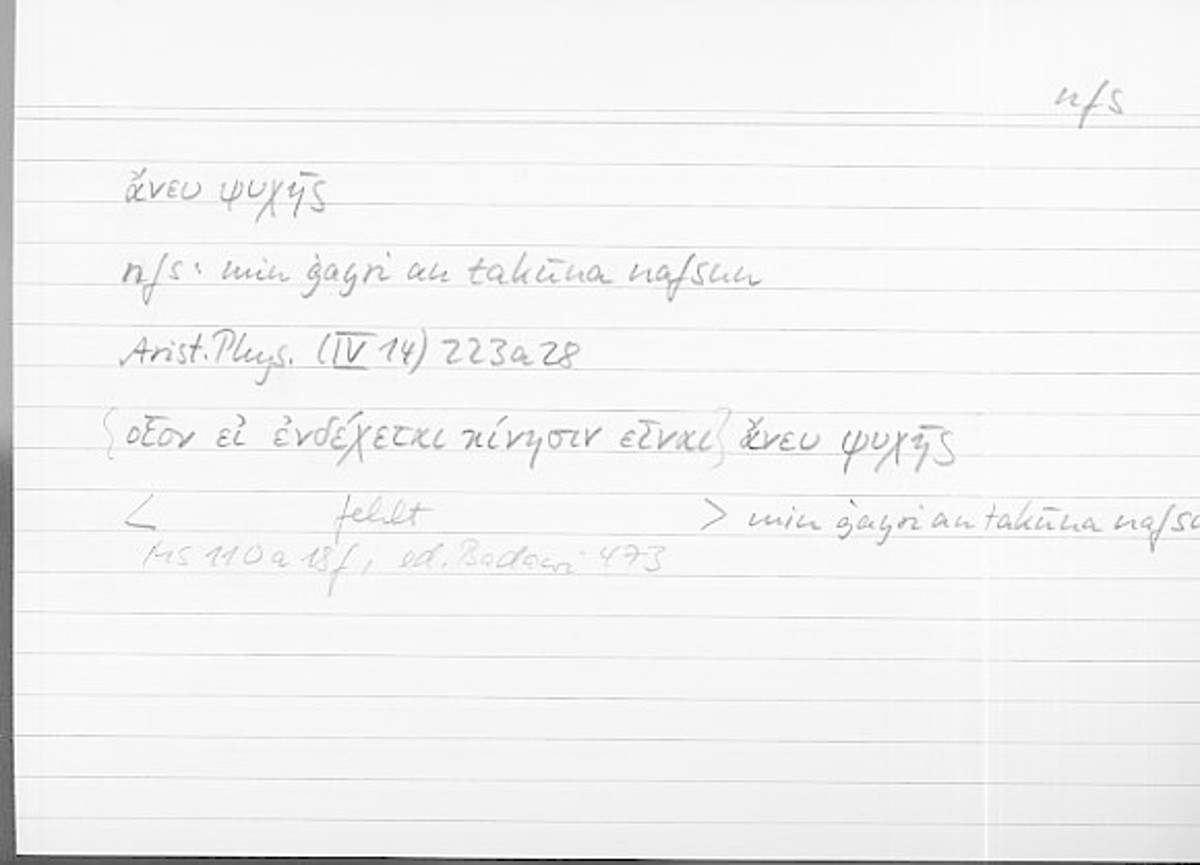 nfs
ἄνευ ψυχῆς
nfs: min ġayri an takūna nafsun
Arist. Phys. (IV 14) 223a28
{οἷον εἰ ἐνδέχεται κίνησιν εἶναι} ἄνευ ψυχῆς
< fehlt > min ġayri an takūna nafsu
Ms 110a 18f, ed. Badawi 473